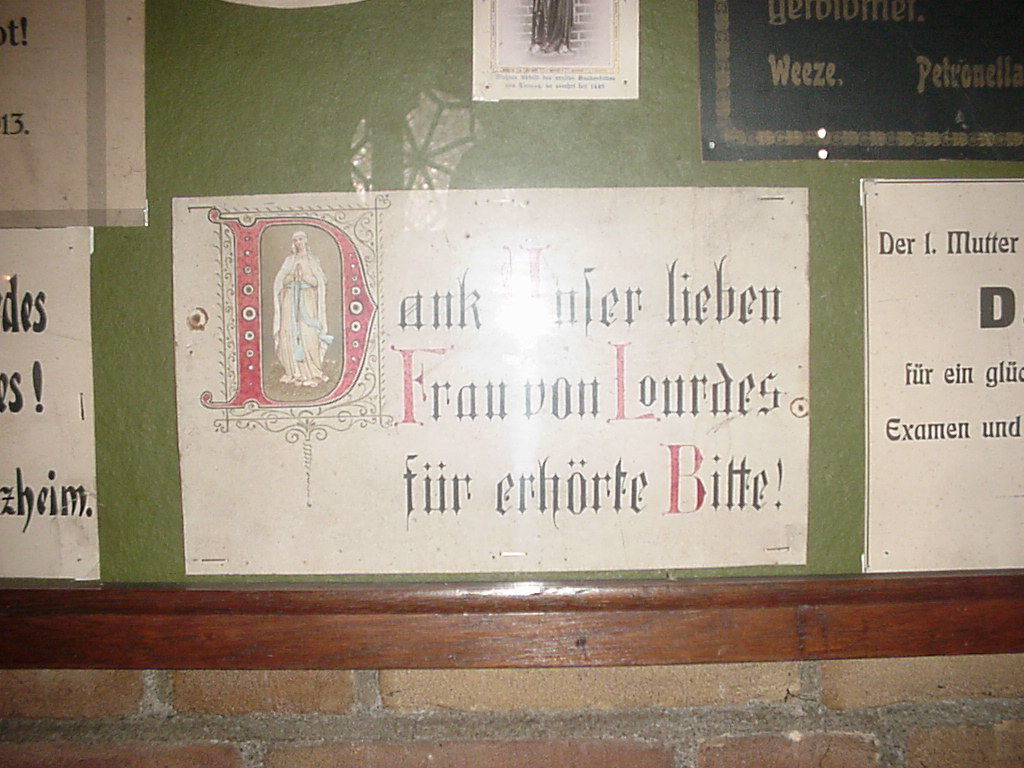 ot!
13.
rdes
es!
zheim.
geröffnet.
Weeze. Petronella
Dank Unser lieben
Frau von Lourdes
für erhörte Bitte!
Der l. Mutter
D
für ein glüc
Examen und